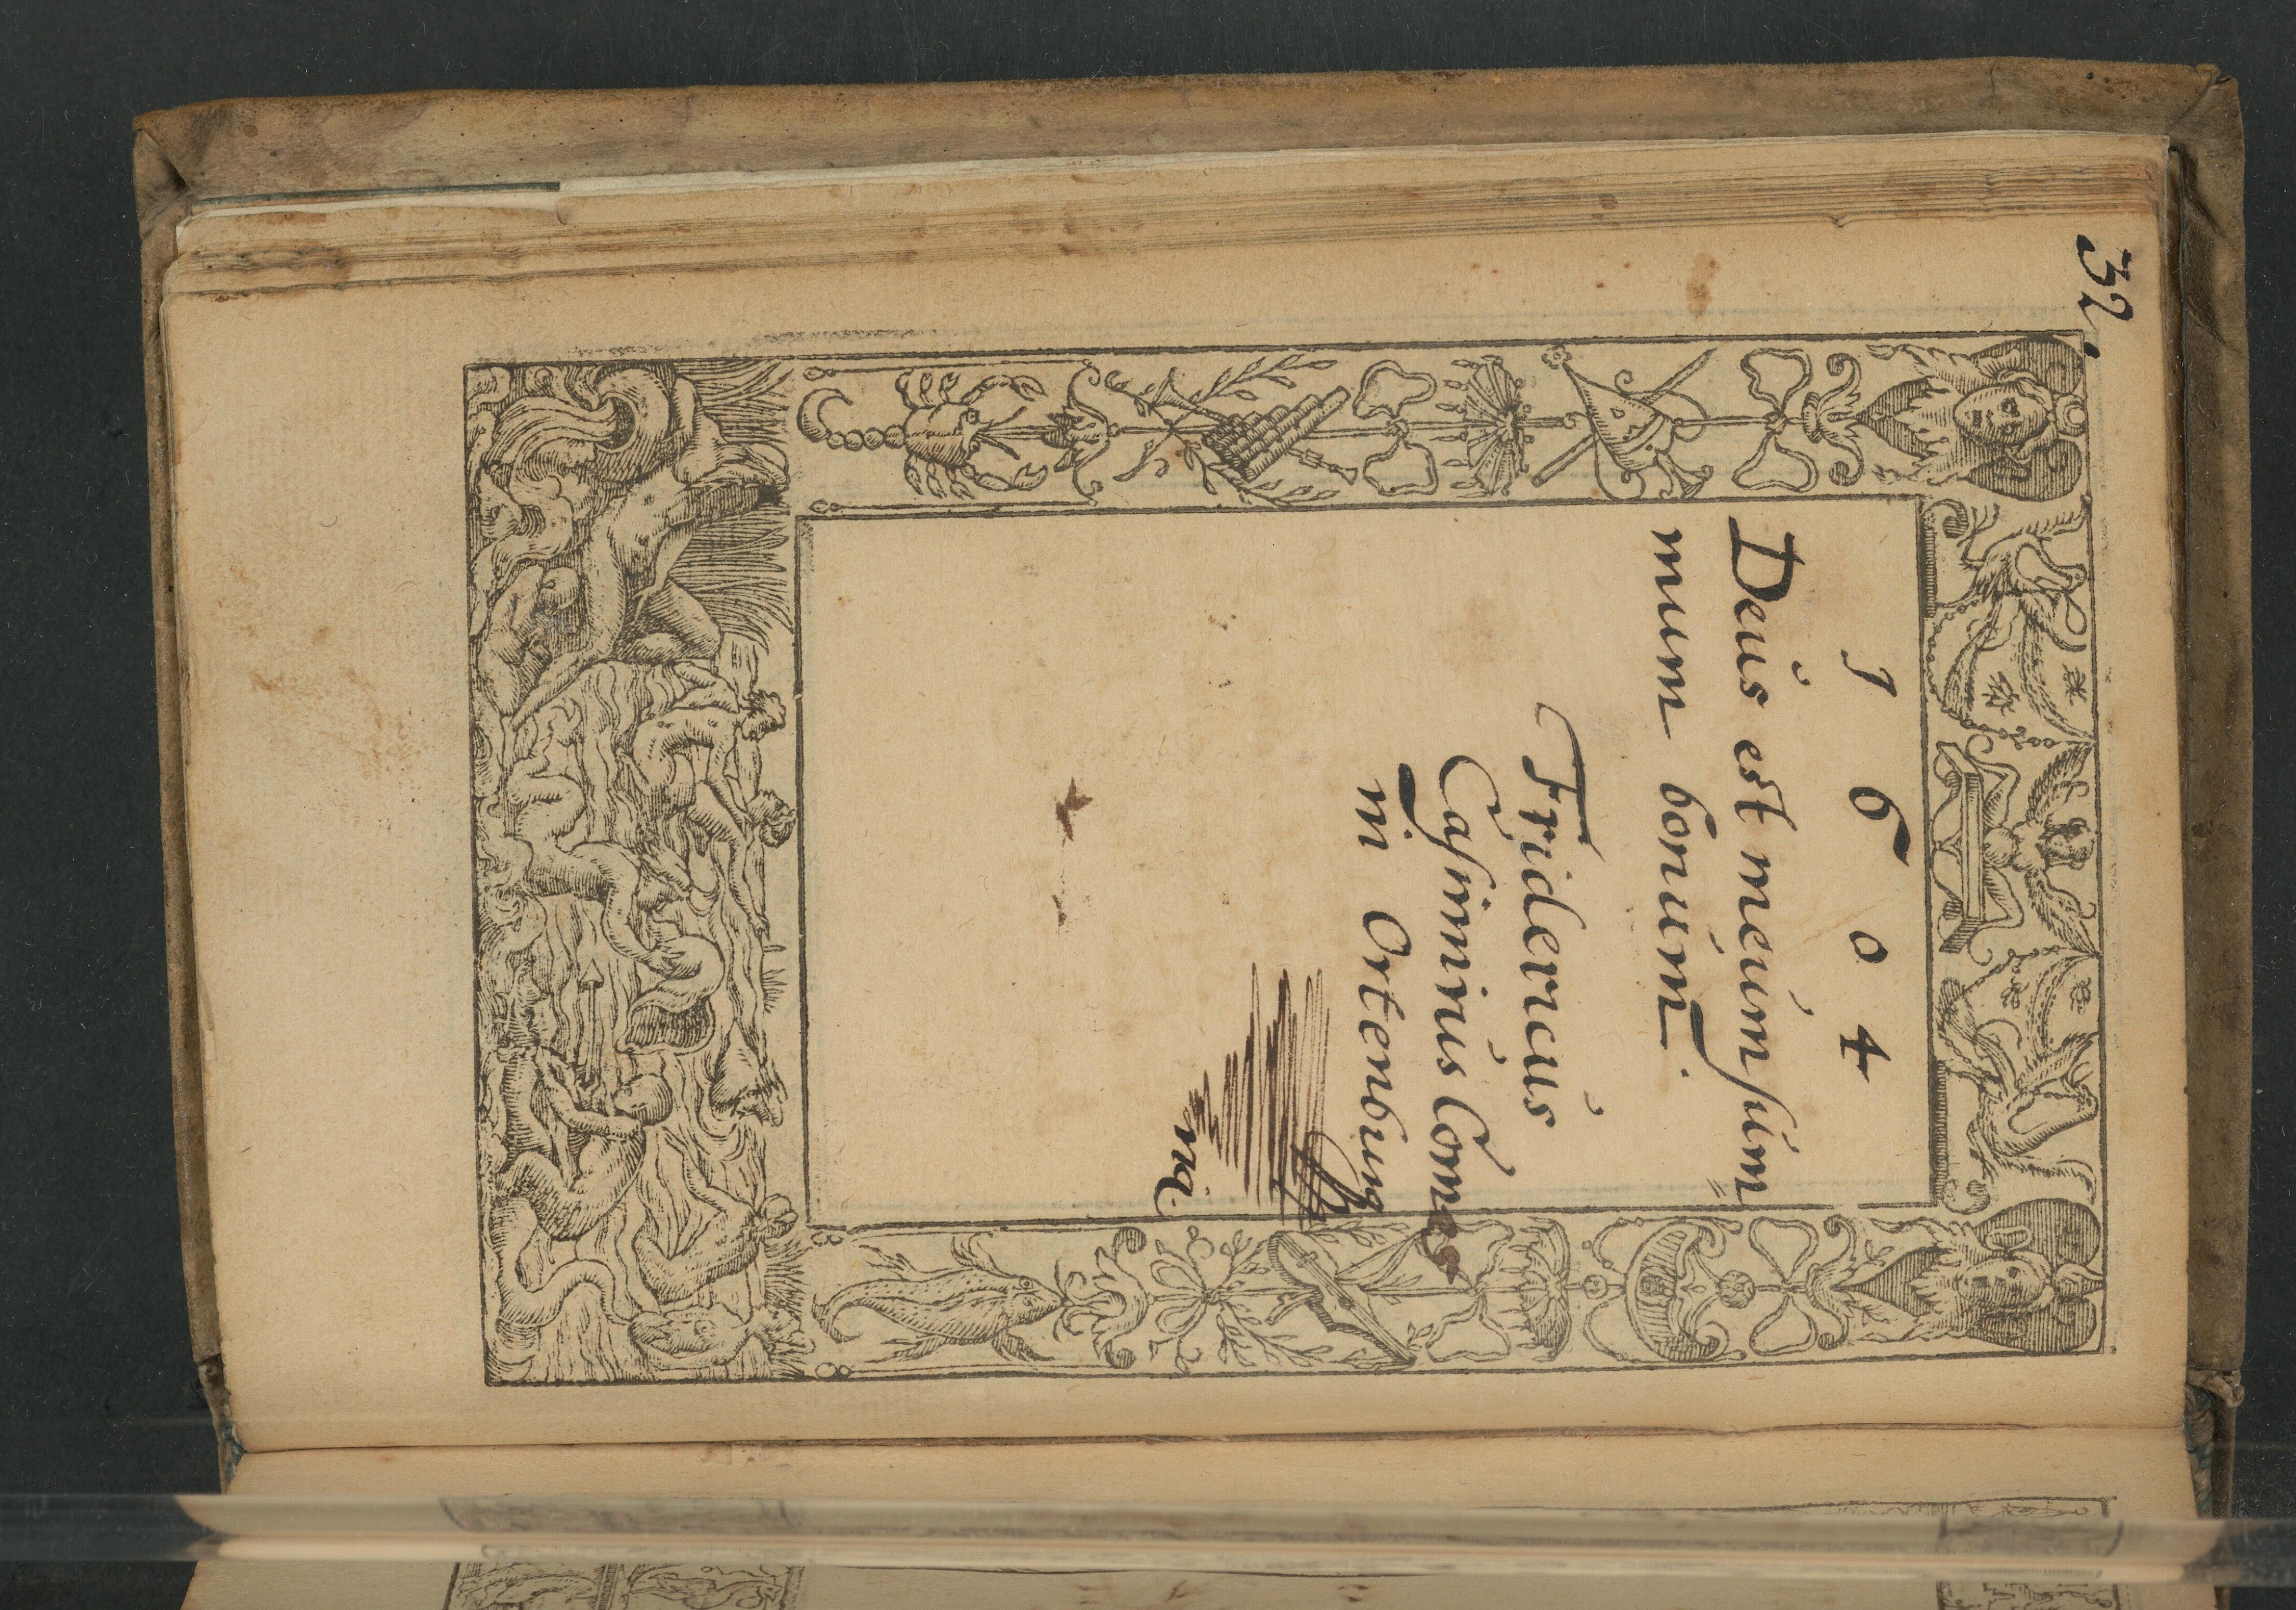 32.
1 6 0 4
Deus est meum sum=
mum bonum.
Fridericus
Casimirus Comes
in Ortenburg